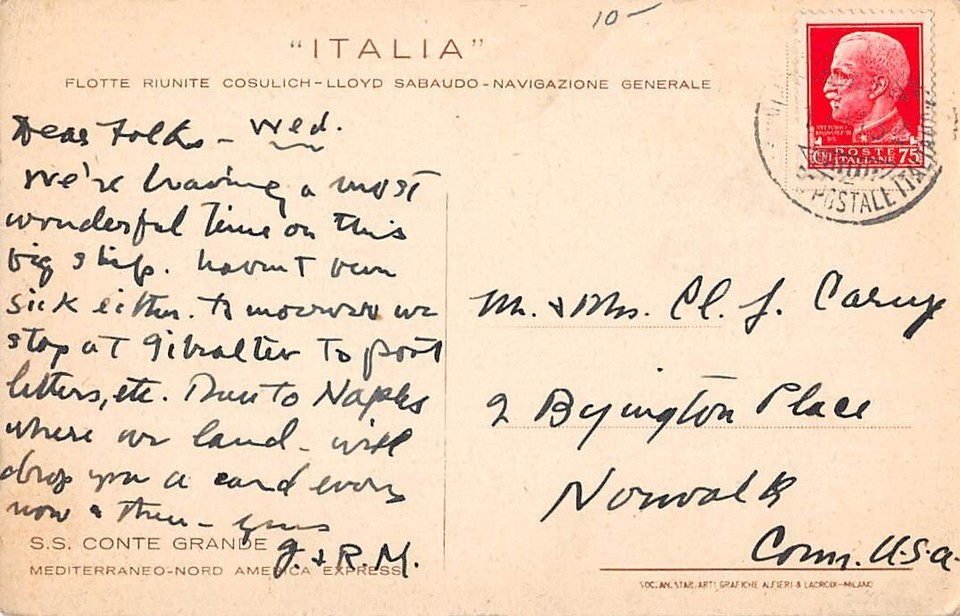 10 —
"ITALIA"
FLOTTE RIUNITE COSULICH-LLOYD SABAUDO-NAVIGAZIONE GENERALE
Dear Folks - Wed.
We're having a most
wonderful time on this
big ship. Havn't been
sick either. Tomorrow we
stop at Gibralter to post
letters, etc. Then to Naples
where we land - will
drop you a card every
now & then - yours
J. & R. M.
S.S. CONTE GRANDE
MEDITERRANEO-NORD AMERICA EXPRESS
POSTE
ITALIANE
CENT 75
POSTALE ITALIANO
Mr. & Mrs. Cl. J.
2 Byington Place
Norwalk
Conn. U.S.A.
SOC. AN. STAB. ARTI GRAFICHE ALFIERI & LACROIX-MILANO